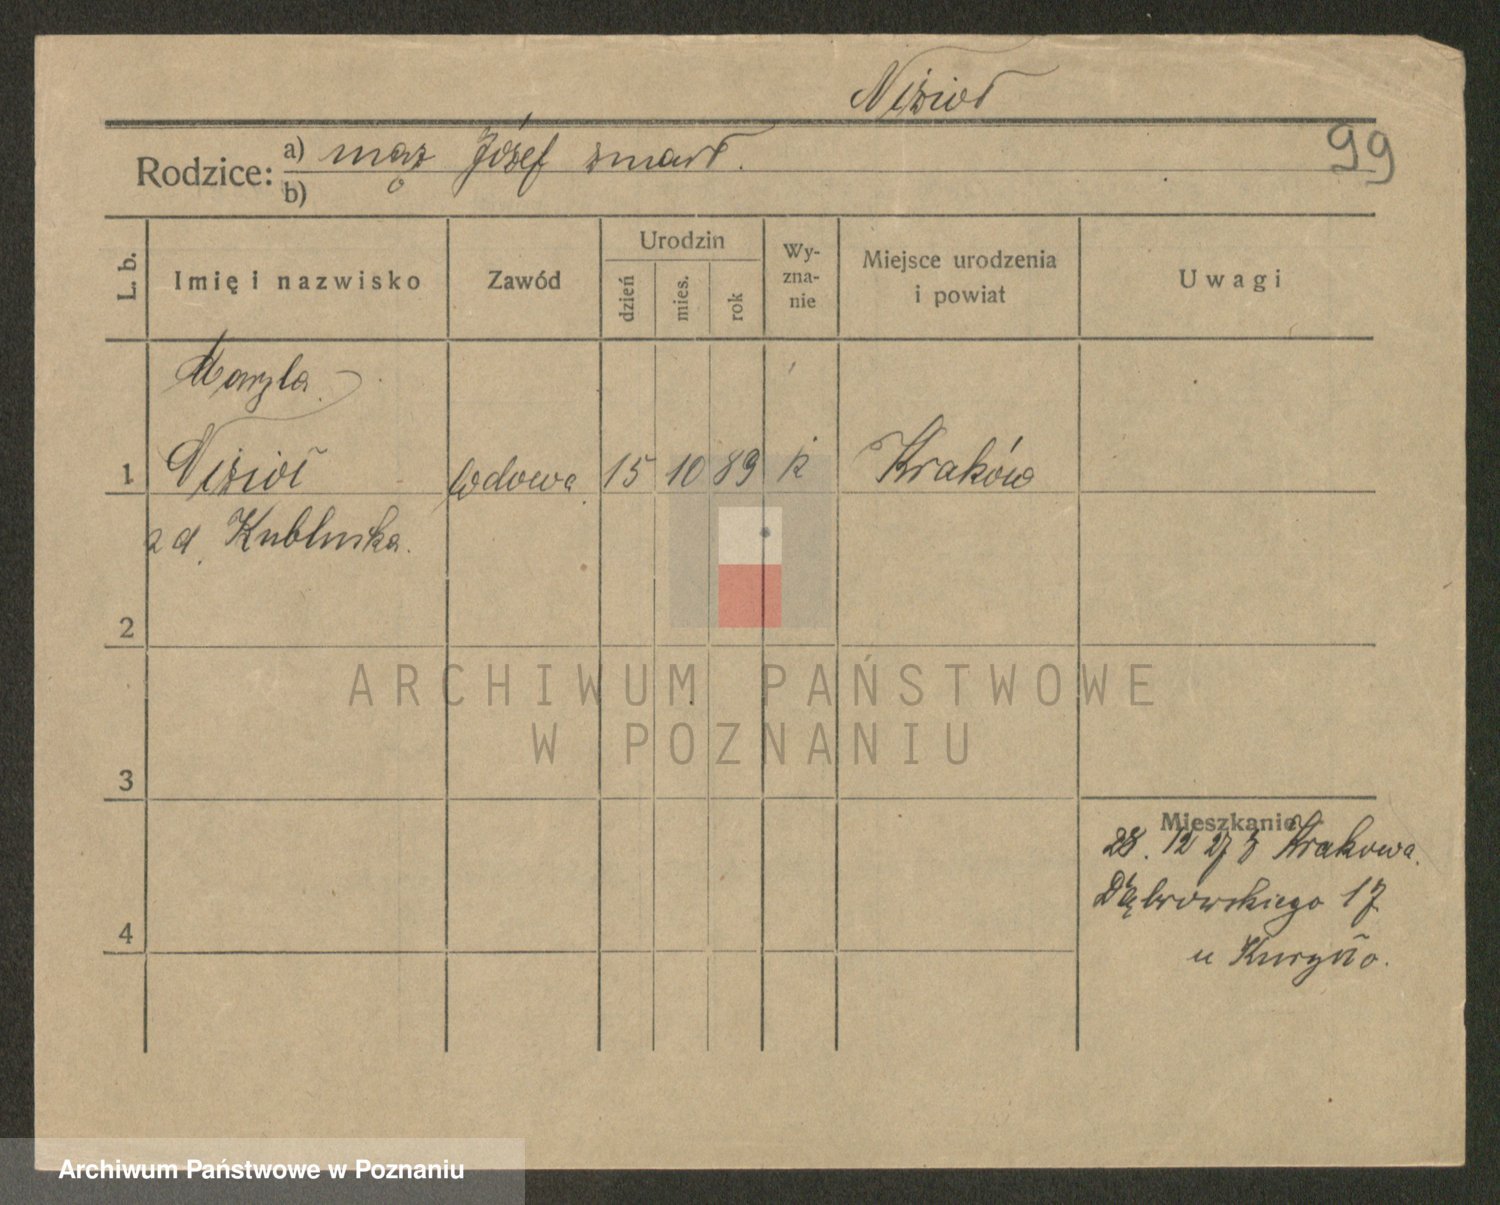 Nizioł
99
Rodzice: a) mąż Józef zmarł.
b)
L. b.
Imię i nazwisko
Zawód
Urodzin
dzień
mies.
rok
Wy-
zna-
nie
Miejsce urodzenia
i powiat
Uwagi
1
Nizioł
wdowa
15 10 89 k
Kraków
z d.
2
3
4
Mieszkanie
28. 12 27 z Krakowa.
Dąbrowskiego 17
u
ARCHIWUM PAŃSTWOWE
W POZNANIU
Archiwum Państwowe w Poznaniu